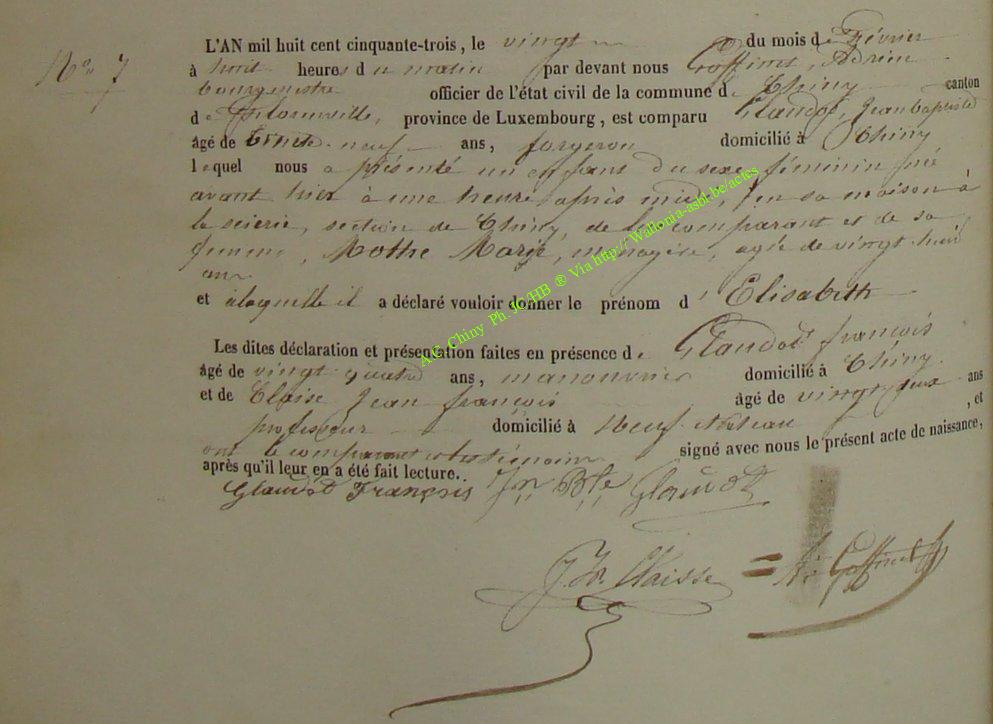 No. 7
L'AN mil huit cent cinquante-trois, le vingt du mois de Février
à huit heures du matin par devant nous Goffinet, Adrien
bourgmestre officier de l'état civil de la commune de Chiny canton
de Florenville, province de Luxembourg, est comparu Glaudot, Jean Baptiste
âgé de trente-neuf ans, forgeron domicilié à Chiny
lequel nous a présenté un enfant du sexe féminin né
avant hier à une heure après midi, en sa maison à
la scierie, section de Chiny, de lui comparant et de sa
femme, Mothe Marie, ménagère, agée de vingt-huit
ans
et à laquelle il a déclaré vouloir donner le prénom d'Elisabeth
Les dites déclaration et présentation faites en présence de Glaudot françois
âgé de vingt quatre ans, manouvrier domicilié à Chiny
et de Claise Jean françois âgé de vingt deux ans
professeur domicilié à Neufchateau, et
ont le comparant et les témoins signé avec nous le présent acte de naissance,
après qu'il leur en a été fait lecture.
Glaudot François Jn Bte Glaudot
J. Fs. Claisse Ad. Goffinet
A.C. Chiny Ph. JC/HB ® Via http://Wallonia-asbl.be/actes